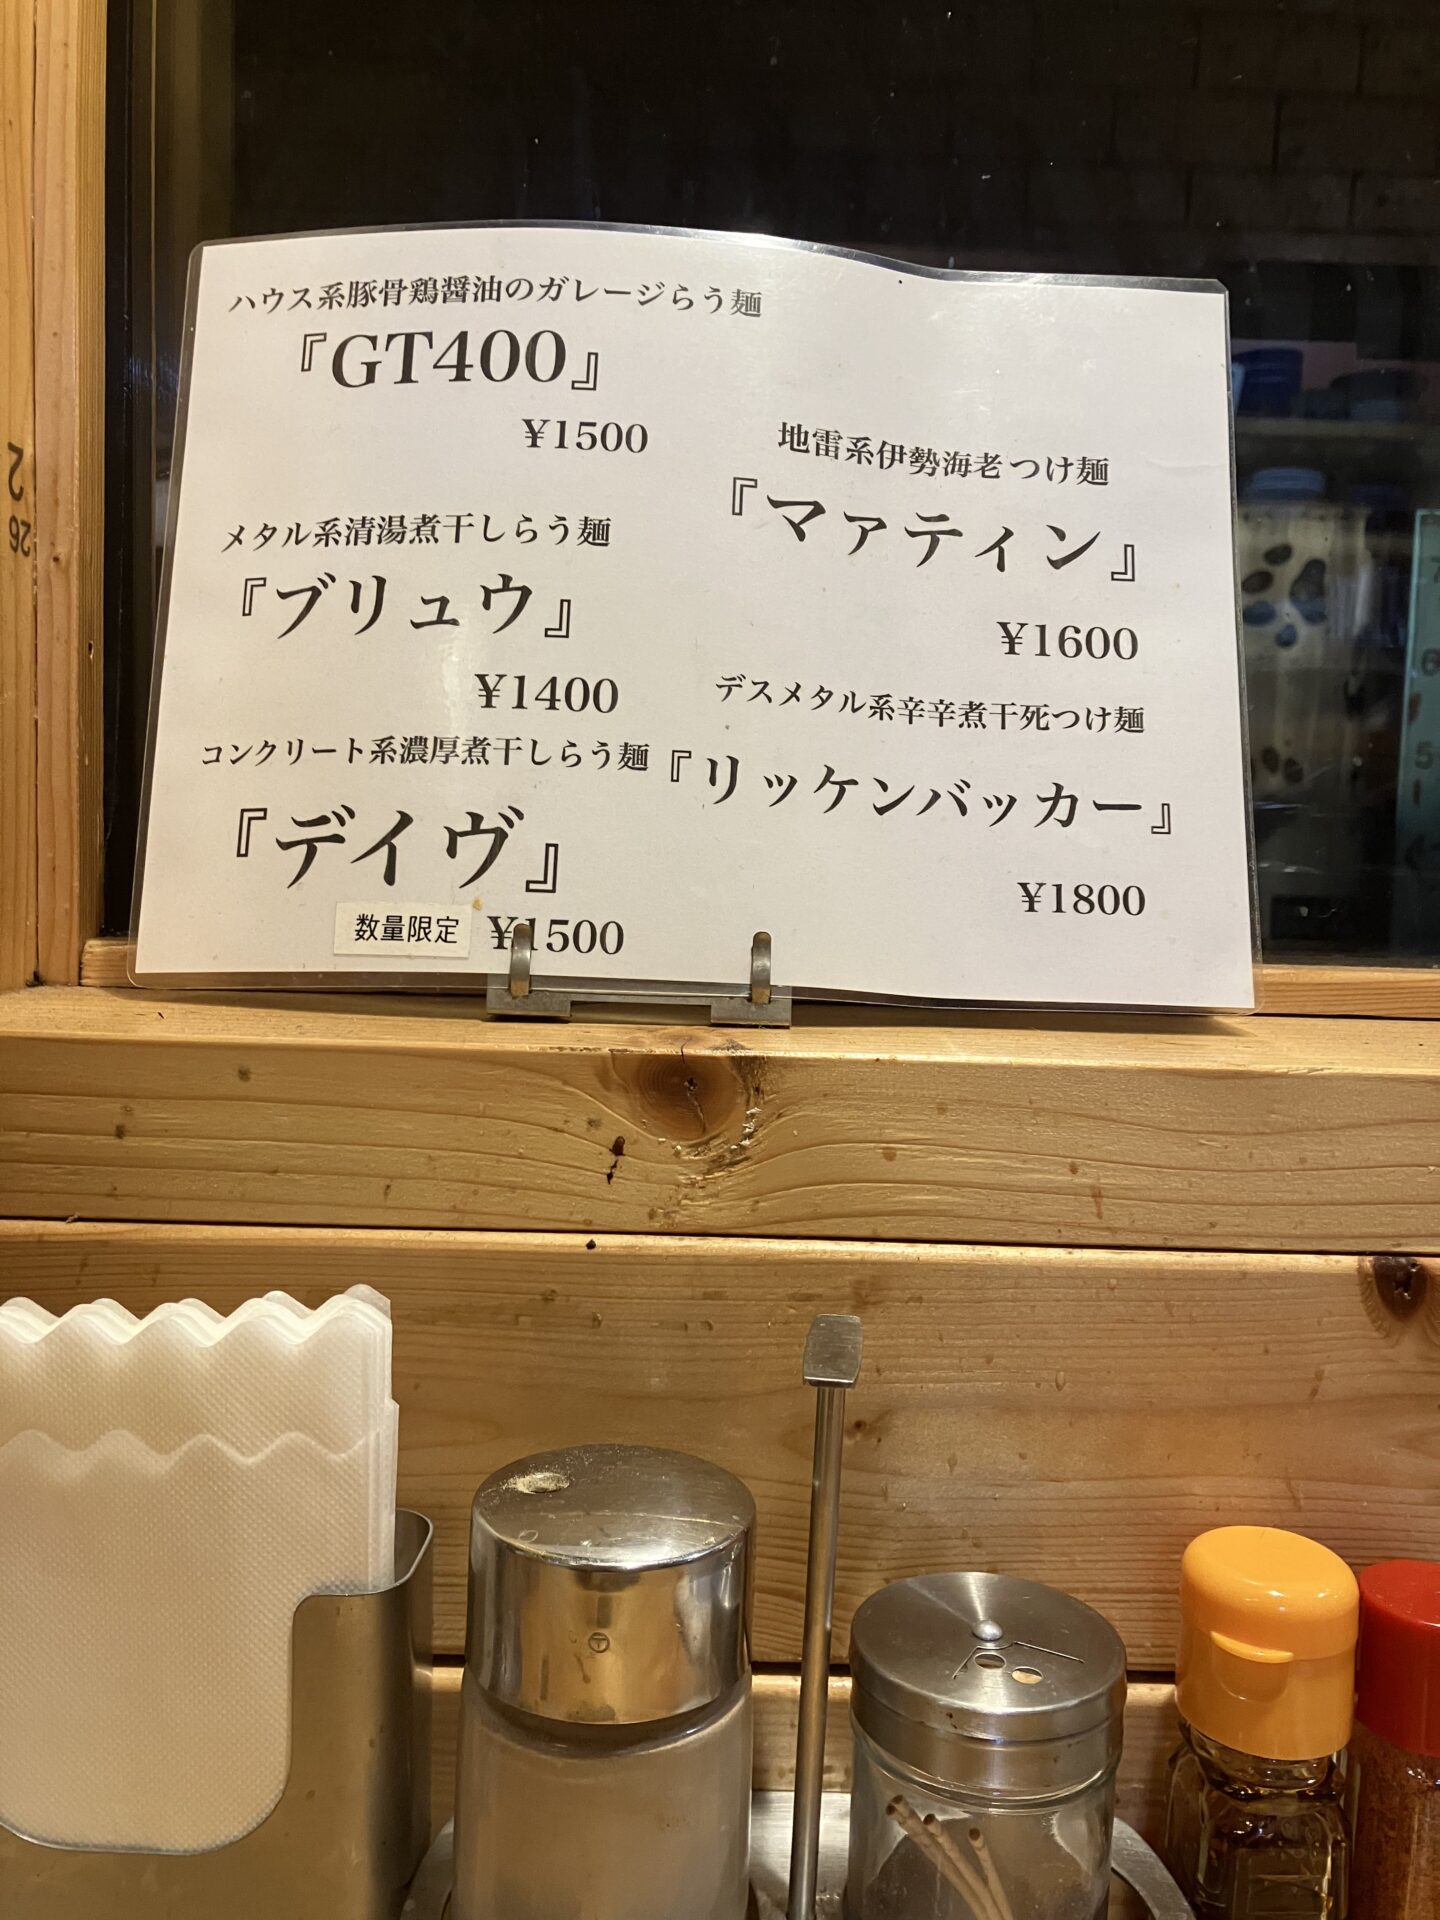 ハウス系豚骨鶏醤油のガレージらう麺
『GT400』
¥1500
メタル系清湯煮干しらう麺
『ブリュウ』
¥1400
コンクリート系濃厚煮干しらう麺
『デイヴ』
数量限定 ¥1500
地雷系伊勢海老つけ麺
『マァティン』
¥1600
デスメタル系辛辛煮干死つけ麺
『リッケンバッカー』
¥1800
2
26